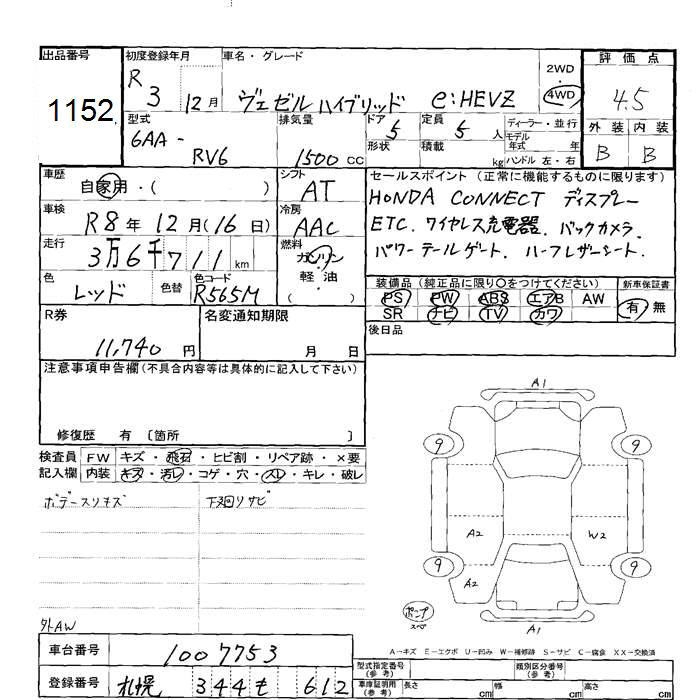 出品番号 初度登録年月 車名・グレード 2WD ・ 4WD 評価点
1152 R 3 12月 ヴェゼルハイブリッド e:HEVZ 4.5
型式 排気量 ドア 定員 ディーラー・並行 外装 内装
6AA - RV6 1500 cc 5 5 人 モデル年式 年 B B
形状 積載 kg ハンドル 左・右
車歴 自家用・( ) シフト AT セールスポイント (正常に機能するものに限ります)
車検 R8年 12月(16日) 冷房 AAC HONDA CONNECT ディスプレー
ETC. ワイヤレス充電器. バックカメラ.
走行 3万6千711km 燃料 ガソリン・軽・油 ( ) パワーテールゲート. ハーフレザーシート.
色 レッド 色替 色コード R565M
装備品 (純正品に限り○をつけてください) 新車保証書
PS PW ABS エアB AW 有・無
SR ナビ TV カワ
R券 11,740円 名変通知期限 月 日 後日品
注意事項申告欄(不具合内容等は具体的に記入して下さい)
修復歴 有 〔箇所 〕
検査員 FW キズ・飛石・ヒビ割・リペア跡・×要
記入欄 内装 キズ・汚レ・コゲ・穴・スレ・キレ・破レ
ボデースリキズ 下廻リサビ
外AW
A1
9 9
A2 W2
9 9
A2
ポンプ
スペ
A1
A-キズ E-エクボ U-凹み W-補修跡 S-サビ C-腐食 XX-交換済
車台番号 1007753
登録番号 札幌 344 も 612
型式指定番号 (参考) 類別区分番号 (参考)
車庫証明用 (参考) 長さ cm 幅 cm 高さ cm